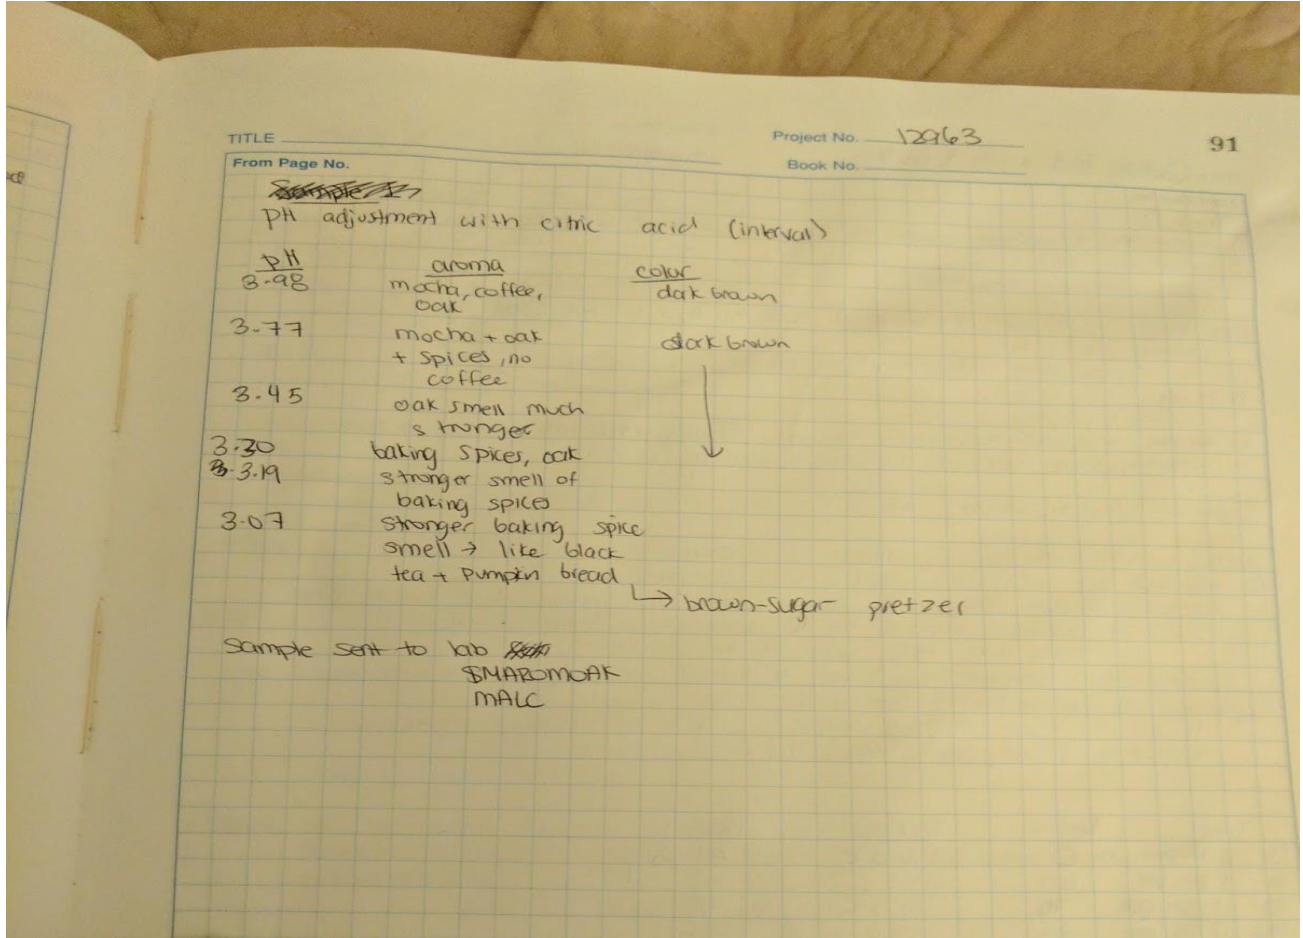 TITLE
Project No. 12963
91
From Page No.
Book No.
pH adjustment with citric acid (interval)
pH aroma color
3.98 mocha, coffee, dark brown
oak
3.77 mocha + oak dark brown
+ spices, no
coffee
3.45 oak smell much
stronger
3.30 baking spices, oak
3.19 stronger smell of
baking spices
3.07 stronger baking spice
smell → like black
tea + pumpkin bread
↳ brown-sugar pretzel
sample sent to lab
SMAROMOAK
MALC